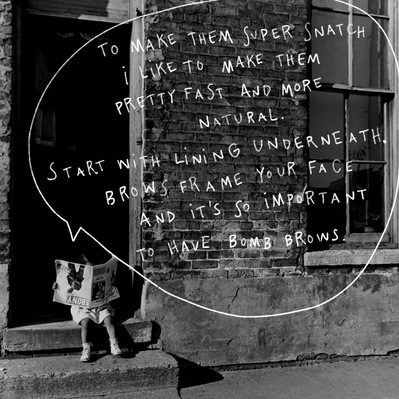 TO MAKE THEM SUPER SNATCH
i LIKE TO MAKE THEM
PRETTY FAST AND MORE
NATURAL.
START WITH LINING UNDERNEATH.
BROWS FRAME YOUR FACE
AND IT'S SO IMPORTANT
TO HAVE BOMB BROWS.
EBONY